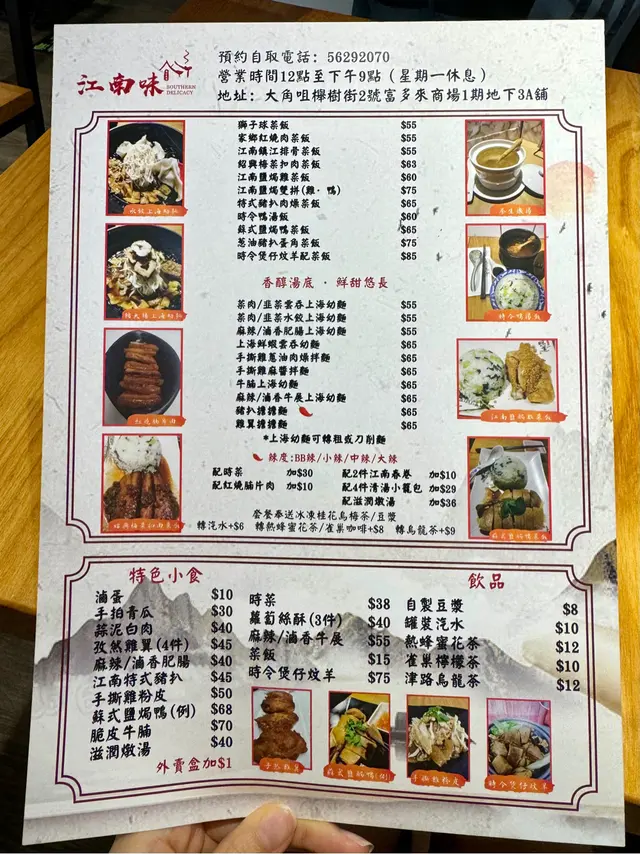 江南味
SOUTHERN
DELICACY
預約自取電話: 56292070
營業時間12點至下午9點（星期一休息）
地址: 大角咀櫸樹街2號富多來商場1期地下3A舖
獅子球菜飯 $55
家鄉紅燒肉菜飯 $55
江南鎮江排骨菜飯 $55
紹興梅菜扣肉菜飯 $63
江南鹽焗雞菜飯 $60
江南鹽焗雙拼(雞·鴨) $75
特式豬扒肉燥菜飯 $65
時令鴨湯飯 $60
蘇式鹽焗鴨菜飯 $65
蔥油豬扒蛋角菜飯 $75
時令煲仔炆羊配菜飯 $85
香醇湯底 · 鮮甜悠長
菜肉/韭菜雲吞上海幼麵 $55
菜肉/韭菜水餃上海幼麵 $55
麻辣/滷香肥腸上海幼麵 $55
上海鮮蝦雲吞幼麵 $65
手撕雞蔥油肉燥拌麵 $65
手撕雞麻醬拌麵 $65
牛腩上海幼麵 $65
麻辣/滷香牛展上海幼麵 $65
豬扒擔擔麵 $65
雞翼擔擔麵 $65
*上海幼麵可轉粗或刀削麵
辣度:BB辣/小辣/中辣/大辣
配時菜 加$30
配紅燒腩片肉 加$10
配2件江南春卷 加$10
配4件清湯小籠包 加$29
配滋潤燉湯 加$36
套餐奉送冰凍桂花烏梅茶/豆漿
轉汽水+$6 轉熱蜂蜜花茶/雀巢咖啡+$8 轉烏龍茶+$9
水餃上海幼麵
紅燒腩片肉
養生燉湯
時令鴨湯飯
江南鹽焗雞菜飯
蘇式鹽焗鴨菜飯
特色小食
滷蛋 $10
手拍青瓜 $30
蒜泥白肉 $40
孜然雞翼(4件) $45
麻辣/滷香肥腸 $40
江南特式豬扒 $45
手撕雞粉皮 $50
蘇式鹽焗鴨(例) $68
脆皮牛腩 $70
滋潤燉湯 $40
外賣盒加$1
時菜 $38
蘿蔔絲酥(3件) $40
麻辣/滷香牛展 $55
菜飯 $15
時令煲仔炆羊 $75
飲品
自製豆漿 $8
罐裝汽水 $10
熱蜂蜜花茶 $12
雀巢檸檬茶 $10
津路烏龍茶 $12
孜然雞翼
蘇式鹽焗鴨(例)
手撕雞粉皮
時令煲仔炆羊